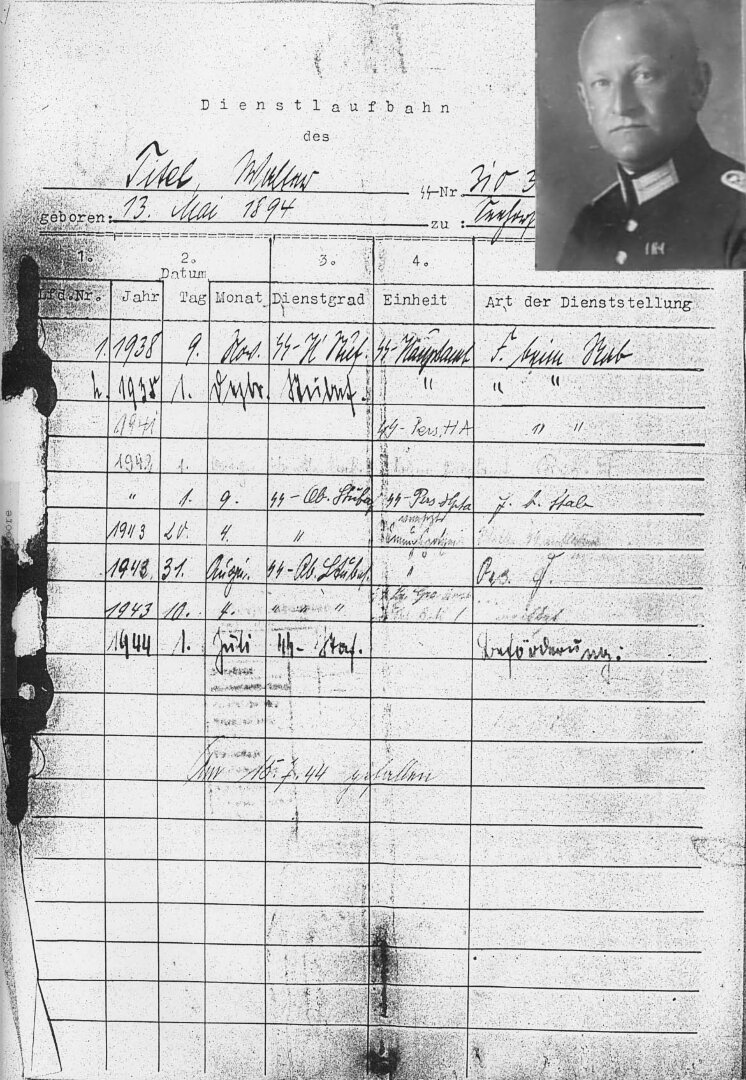 Dienstlaufbahn
des
Titel, Walter ᛋᛋ-Nr. 310 3
geboren: 13. Mai 1894 zu :
1. 2. 3. 4.
Datum
Lfd.Nr. Jahr Tag Monat Dienstgrad Einheit Art der Dienststellung
1. 1938 9. Nov. ᛋᛋ-H'Stuf. ᛋᛋ-Hauptamt F. beim Stab
2. 1938 1. Dezbr. Stubaf. " " "
1941 ᛋᛋ-Pers.HA " "
1942 1.
" 1. 9. ᛋᛋ-Ob.Stubaf ᛋᛋ-Pers F. b. Stab
1943 20. 4. "
1942 31. Aug. ᛋᛋ-Ob.Stubaf. "
1943 10. 4. " " "
1944 1. Juli ᛋᛋ-Staf. Beförderung:
Am 15.7.44 gefallen